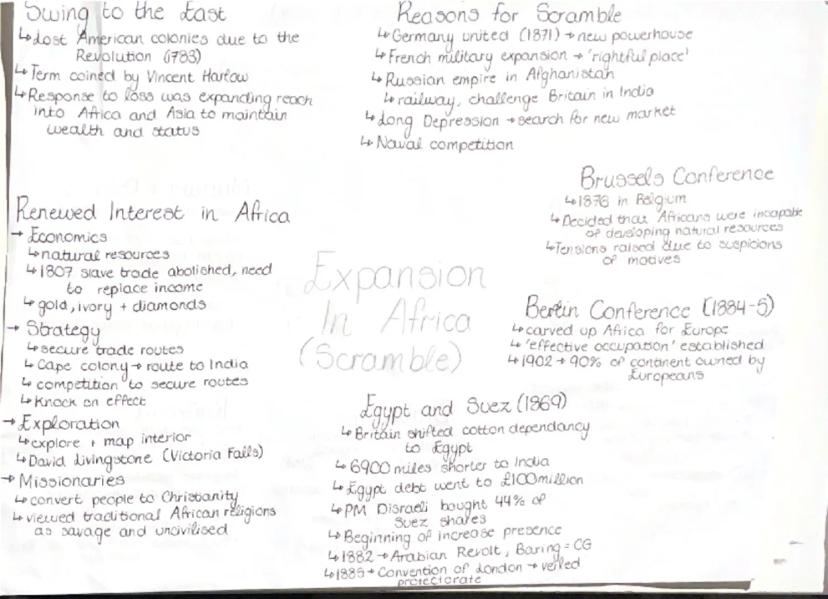 Swing to the East
↳Lost American colonies due to the
Revolution (1783)
↳Term coined by Vincent Harlow
↳Response to loss was expanding reach
into Africa and Asia to maintain
wealth and status
Reasons for Scramble
↳Germany united (1871) → new powerhouse
↳French military expansion → 'rightful place'
↳Russian empire in Afghanistan
↳railway, challenge Britain in India
↳Long Depression → search for new market
↳Naval competition
Brussels Conference
↳1876 in Belgium
↳Decided that Africans were incapable
of developing natural resources
↳Tensions raised due to suspicions
of motives
Renewed Interest in Africa
→ Economics
↳natural resources
↳1807 slave trade abolished, need
to replace income
↳gold, ivory + diamonds
→ Strategy
↳secure trade routes
↳Cape colony → route to India
↳competition to secure routes
↳Knock on effect
→ Exploration
↳explore + map interior
↳David Livingstone (Victoria Falls)
→ Missionaries
↳convert people to Christianity
↳viewed traditional African religions
as savage and uncivilised
Expansion
In Africa
(Scramble)
Berlin Conference (1884-5)
↳carved up Africa for Europe
↳'effective occupation' established
↳1902 → 90% of continent owned by
Europeans
Egypt and Suez (1869)
↳Britain shifted cotton dependancy
to Egypt
↳6900 miles shorter to India
↳Egypt debt went to £100million
↳PM Disraeli bought 44% of
Suez shares
↳Beginning of increase presence
↳1882 → Arabian Revolt, Baring = CG
↳1885 → Convention of London → veiled
protectorate